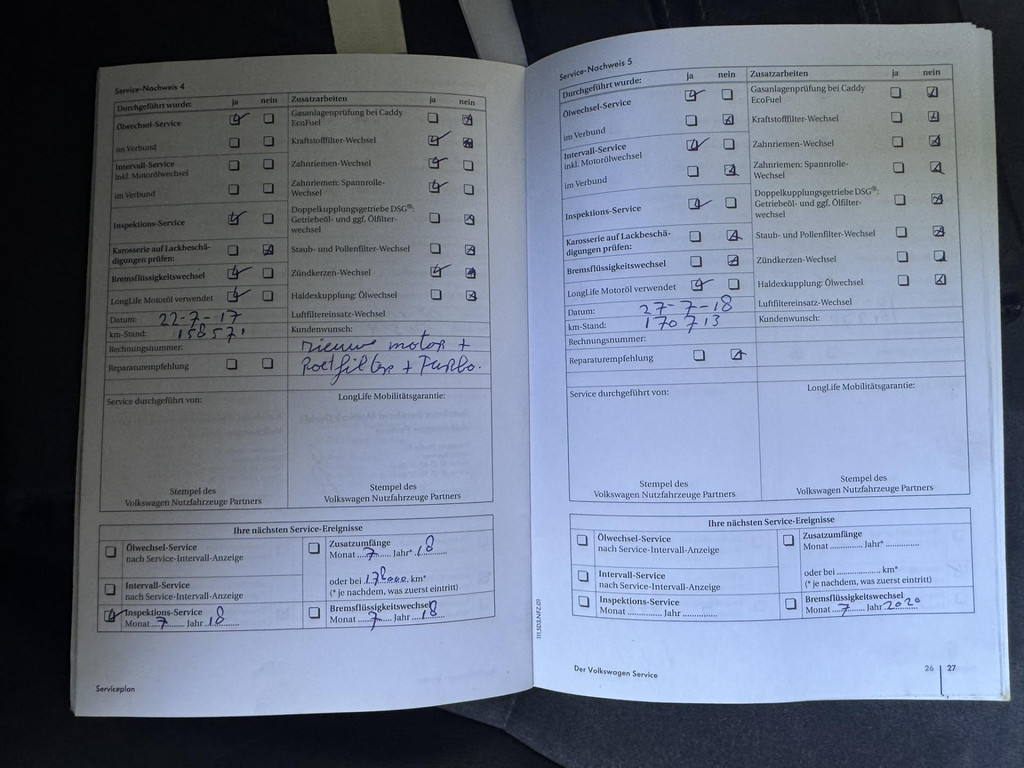 Service-Nachweis 4
Durchgeführt wurde: ja nein Zusatzarbeiten ja nein
Ölwechsel-Service Gasanlagenprüfung bei Caddy
EcoFuel
im Verbund Kraftstofffilter-Wechsel
Intervall-Service Zahnriemen-Wechsel
inkl. Motorölwechsel
im Verbund Zahnriemen: Spannrolle-
Wechsel
Inspektions-Service Doppelkupplungsgetriebe DSG®:
Getriebeöl- und ggf. Ölfilter-
wechsel
Karosserie auf Lackbeschä- Staub- und Pollenfilter-Wechsel
digungen prüfen:
Bremsflüssigkeitswechsel Zündkerzen-Wechsel
LongLife Motoröl verwendet Haldexkupplung: Ölwechsel
Datum: 22-7-17 Luftfiltereinsatz-Wechsel
km-Stand: 158571 Kundenwunsch:
Rechnungsnummer: nieuwe motor +
Reparaturempfehlung Roetfilter + Turbo.
Service durchgeführt von: LongLife Mobilitätsgarantie:
Stempel des Stempel des
Volkswagen Nutzfahrzeuge Partners Volkswagen Nutzfahrzeuge Partners
Ihre nächsten Service-Ereignisse
Ölwechsel-Service Zusatzumfänge
nach Service-Intervall-Anzeige Monat 7 Jahr* 18
oder bei 178000 km*
Intervall-Service (* je nachdem, was zuerst eintritt)
nach Service-Intervall-Anzeige
Inspektions-Service Bremsflüssigkeitswechsel
Monat 7 Jahr 18 Monat 7 Jahr 18
Serviceplan
Service-Nachweis 5
Durchgeführt wurde: ja nein Zusatzarbeiten ja nein
Ölwechsel-Service Gasanlagenprüfung bei Caddy
EcoFuel
im Verbund Kraftstofffilter-Wechsel
Intervall-Service Zahnriemen-Wechsel
inkl. Motorölwechsel
im Verbund Zahnriemen: Spannrolle-
Wechsel
Inspektions-Service Doppelkupplungsgetriebe DSG®:
Getriebeöl- und ggf. Ölfilter-
wechsel
Karosserie auf Lackbeschä- Staub- und Pollenfilter-Wechsel
digungen prüfen:
Bremsflüssigkeitswechsel Zündkerzen-Wechsel
LongLife Motoröl verwendet Haldexkupplung: Ölwechsel
Datum: 27-7-18 Luftfiltereinsatz-Wechsel
km-Stand: 170713 Kundenwunsch:
Rechnungsnummer:
Reparaturempfehlung
Service durchgeführt von: LongLife Mobilitätsgarantie:
Stempel des Stempel des
Volkswagen Nutzfahrzeuge Partners Volkswagen Nutzfahrzeuge Partners
Ihre nächsten Service-Ereignisse
Ölwechsel-Service Zusatzumfänge
nach Service-Intervall-Anzeige Monat Jahr*
oder bei km*
Intervall-Service (* je nachdem, was zuerst eintritt)
nach Service-Intervall-Anzeige
Inspektions-Service Bremsflüssigkeitswechsel
Monat Jahr Monat 7 Jahr 2020
Der Volkswagen Service 26 27